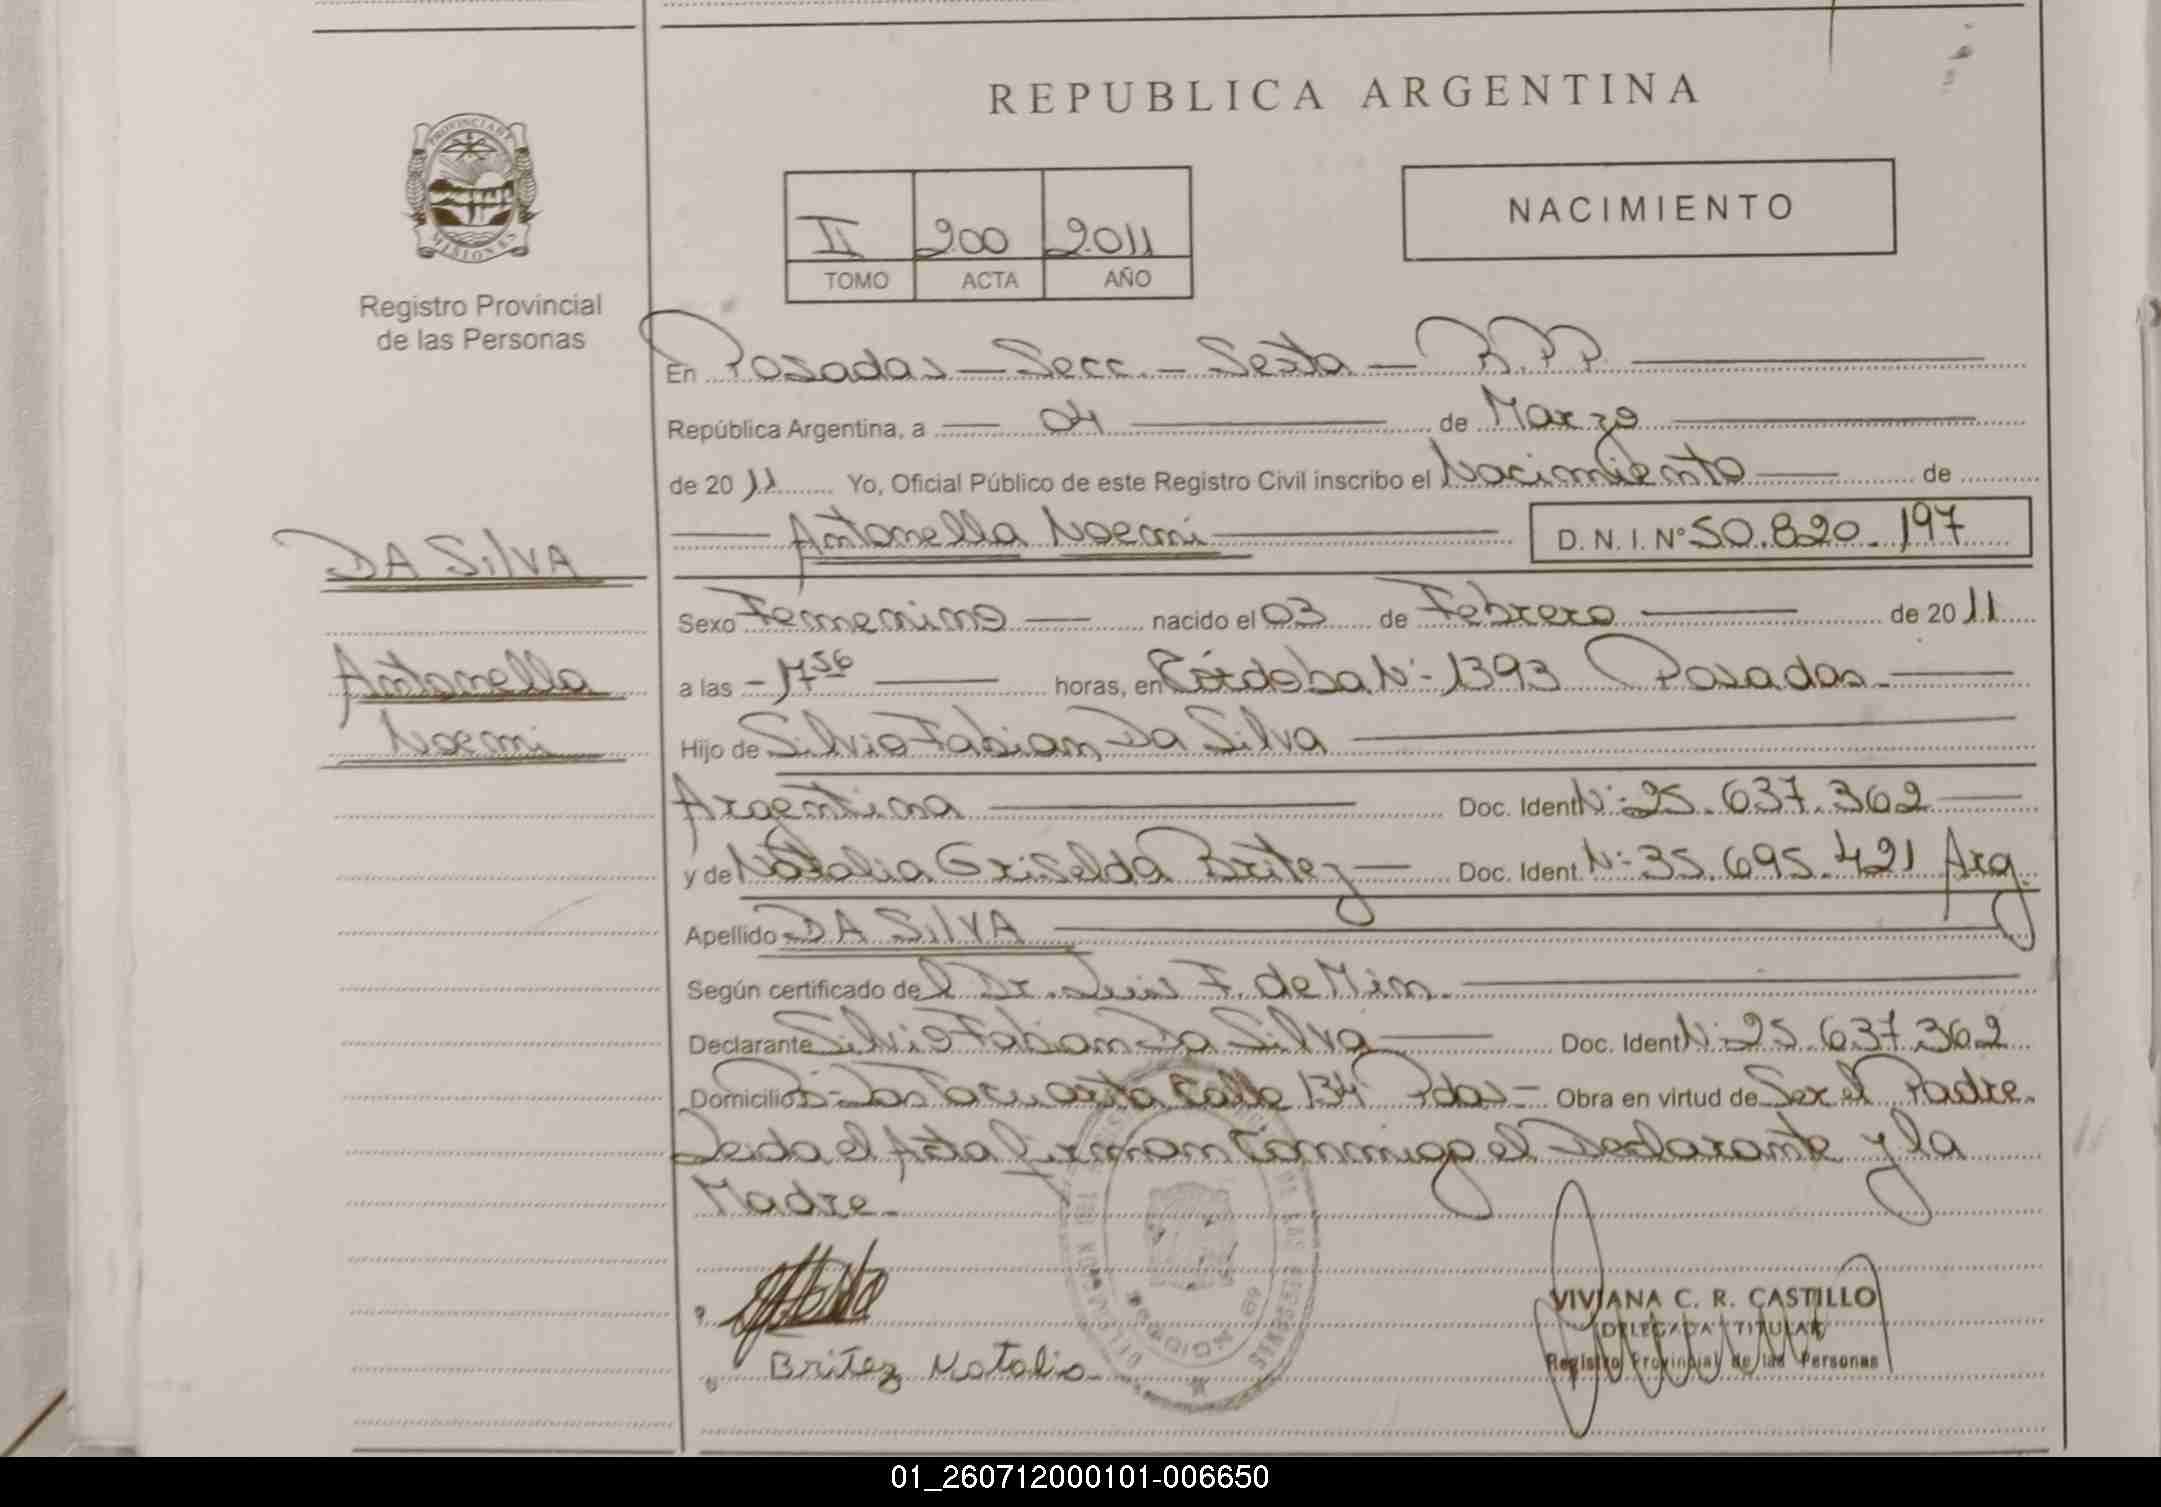 REPUBLICA ARGENTINA
PROVINCIA DE MISIONES
Registro Provincial
de las Personas
II 200 2011
TOMO ACTA AÑO
NACIMIENTO
En Posadas - Secc. - Sexta - R.P.P.
República Argentina, a 04 de Marzo
de 2011 Yo, Oficial Público de este Registro Civil inscribo el Nacimiento de
Antonella Noemi D. N. I. N° 50.820.197
DA SilVA
Antonella
Noemi
Sexo Femenino nacido el 03 de Febrero de 2011
a las - 17 56 horas, en Córdoba N° 1393 Posadas
Hijo de Silvio Fabian Da Silva
Argentina Doc. Ident N° 25.637.362
y de Natalia Griselda Britez Doc. Ident. N° 35.695.421 Arg.
Apellido DA SilVA
Según certificado del Dr. Luis F. de Mim.
Declarante Silvio Fabian Da Silva Doc. Ident N° 25.637.362
Domicilio Calle 134 Pdas - Obra en virtud de Ser el Padre.
Leida el Acta firman conmigo el Declarante y la
Madre.
Britez Natalia
VIVIANA C. R. CASTILLO
DELEGADA TITULAR
Registro Provincial de las Personas
01_260712000101-006650